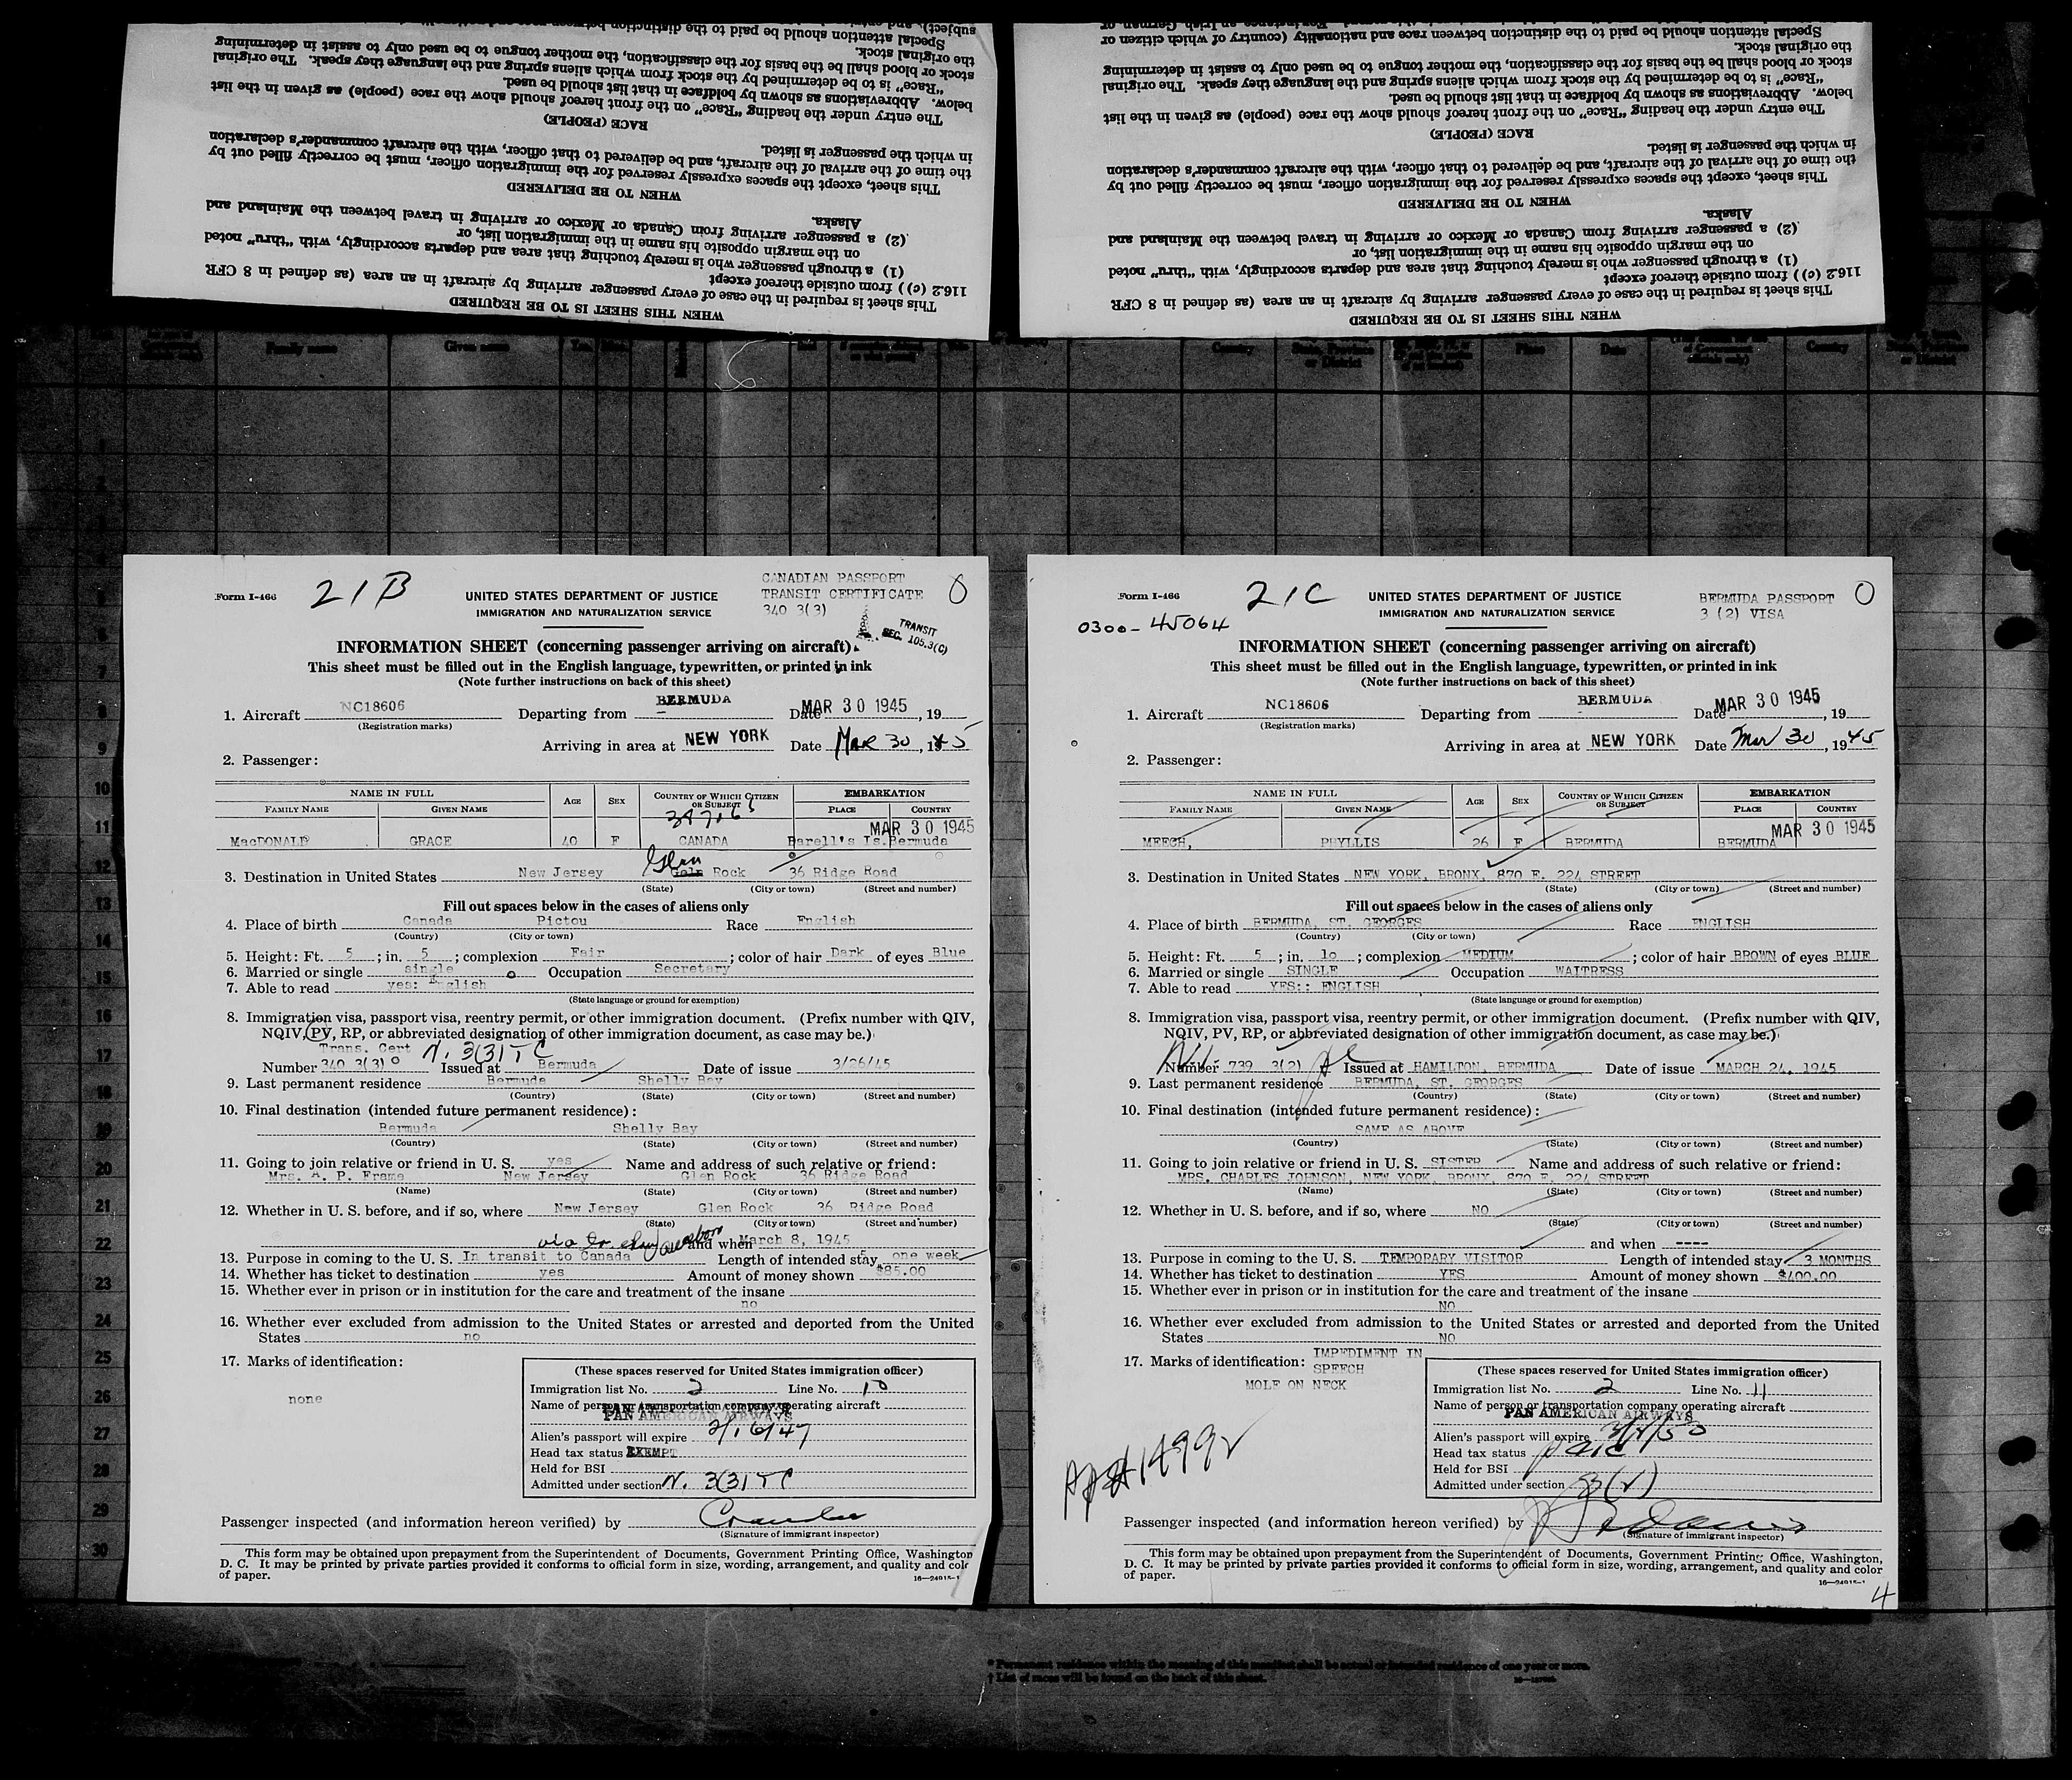 subject), and
Special attention should be paid to the distinction between race and
the original stock.
stock or blood shall be the basis for the classification, the mother tongue to be used only to assist in determining
"Race" is to be determined by the stock from which aliens spring and the language they speak. The original
below. Abbreviations as shown by boldface in that list should be used.
The entry under the heading "Race" on the front hereof should show the race (people) as given in the list
RACE (PEOPLE)
in which the passenger is listed.
the time of the arrival of the aircraft, and be delivered to that officer, with the aircraft commander's declaration
This sheet, except the spaces expressly reserved for the immigration officer, must be correctly filled out by
WHEN TO BE DELIVERED
Alaska.
(2) a passenger arriving from Canada or Mexico or arriving in travel between the Mainland and
on the margin opposite his name in the immigration list, or
(1) a through passenger who is merely touching that area and departs accordingly, with "thru" noted
116.2 (c) ) from outside thereof except
This sheet is required in the case of every passenger arriving by aircraft in an area (as defined in 8 CFR
WHEN THIS SHEET IS TO BE REQUIRED
Special attention should be paid to the distinction between race and nationality (country of which citizen or
the original stock.
stock or blood shall be the basis for the classification, the mother tongue to be used only to assist in determining
"Race" is to be determined by the stock from which aliens spring and the language they speak. The original
below. Abbreviations as shown by boldface in that list should be used.
The entry under the heading "Race" on the front hereof should show the race (people) as given in the list
RACE (PEOPLE)
in which the passenger is listed.
the time of the arrival of the aircraft, and be delivered to that officer, with the aircraft commander's declaration
This sheet, except the spaces expressly reserved for the immigration officer, must be correctly filled out by
WHEN TO BE DELIVERED
Alaska.
(2) a passenger arriving from Canada or Mexico or arriving in travel between the Mainland and
on the margin opposite his name in the immigration list, or
(1) a through passenger who is merely touching that area and departs accordingly, with "thru" noted
116.2 (c) ) from outside thereof except
This sheet is required in the case of every passenger arriving by aircraft in an area (as defined in 8 CFR
WHEN THIS SHEET IS TO BE REQUIRED
Family name Given name
Country State, Province or District Place Date Country
Form I-466 21B UNITED STATES DEPARTMENT OF JUSTICE
IMMIGRATION AND NATURALIZATION SERVICE
CANADIAN PASSPORT
TRANSIT CERTIFICATE
340 3(3)
0
TRANSIT
SEC. 105.3(C)
INFORMATION SHEET (concerning passenger arriving on aircraft)
This sheet must be filled out in the English language, typewritten, or printed in ink
(Note further instructions on back of this sheet)
1. Aircraft NC18606 Departing from BERMUDA Date MAR 30 1945, 19
(Registration marks)
Arriving in area at NEW YORK Date Mar 30, 1945
2. Passenger:
NAME IN FULL AGE SEX COUNTRY OF WHICH CITIZEN OR SUBJECT EMBARKATION
FAMILY NAME GIVEN NAME PLACE COUNTRY
MAR 30 1945
MacDONALD GRACE 40 F CANADA Darell's Is. Bermuda
3. Destination in United States New Jersey Glen Rock 36 Ridge Road
(State) (City or town) (Street and number)
Fill out spaces below in the cases of aliens only
4. Place of birth Canada Pictou Race English
(Country) (City or town)
5. Height: Ft. 5; in. 5; complexion Fair; color of hair Dark of eyes Blue
6. Married or single single Occupation Secretary
7. Able to read yes: English
(State language or ground for exemption)
8. Immigration visa, passport visa, reentry permit, or other immigration document. (Prefix number with QIV,
NQIV, PV, RP, or abbreviated designation of other immigration document, as case may be.)
Trans. Cert N. 3(3) TC
Number 340 3(3) Issued at Bermuda Date of issue 3/26/45
9. Last permanent residence Bermuda Shelly Bay
(Country) (State) (City or town) (Street and number)
10. Final destination (intended future permanent residence):
Bermuda Shelly Bay
(Country) (State) (City or town) (Street and number)
11. Going to join relative or friend in U. S. yes Name and address of such relative or friend:
Mrs. A. P. Frame New Jersey Glen Rock 36 Ridge Road
(Name) (State) (City or town) (Street and number)
12. Whether in U. S. before, and if so, where New Jersey Glen Rock 36 Ridge Road
(State) (City or town) (Street and number)
and when March 8, 1945
13. Purpose in coming to the U. S. In transit to Canada Length of intended stay one week
14. Whether has ticket to destination yes Amount of money shown $85.00
15. Whether ever in prison or in institution for the care and treatment of the insane
no
16. Whether ever excluded from admission to the United States or arrested and deported from the United
States no
17. Marks of identification:
none
(These spaces reserved for United States immigration officer)
Immigration list No. 2 Line No. 10
Name of person or transportation company operating aircraft
PAN AMERICAN AIRWAYS
Alien's passport will expire 2/16/47
Head tax status EXEMPT
Held for BSI
Admitted under section N. 3(3) TC
Passenger inspected (and information hereon verified) by
(Signature of immigrant inspector)
This form may be obtained upon prepayment from the Superintendent of Documents, Government Printing Office, Washington
D. C. It may be printed by private parties provided it conforms to official form in size, wording, arrangement, and quality and color
of paper.
Form I-466 21C UNITED STATES DEPARTMENT OF JUSTICE
0300-45064 IMMIGRATION AND NATURALIZATION SERVICE
BERMUDA PASSPORT
3 (2) VISA
0
INFORMATION SHEET (concerning passenger arriving on aircraft)
This sheet must be filled out in the English language, typewritten, or printed in ink
(Note further instructions on back of this sheet)
1. Aircraft NC18606 Departing from BERMUDA Date MAR 30 1945, 19
(Registration marks)
Arriving in area at NEW YORK Date Mar 30, 1945
2. Passenger:
NAME IN FULL AGE SEX COUNTRY OF WHICH CITIZEN OR SUBJECT EMBARKATION
FAMILY NAME GIVEN NAME PLACE COUNTRY
MAR 30 1945
MEECH, PHYLLIS 26 F BERMUDA BERMUDA
3. Destination in United States NEW YORK, BRONX, 870 E. 224 STREET
(State) (City or town) (Street and number)
Fill out spaces below in the cases of aliens only
4. Place of birth BERMUDA, ST. GEORGES Race ENGLISH
(Country) (City or town)
5. Height: Ft. 5; in. 10; complexion MEDIUM; color of hair BROWN of eyes BLUE
6. Married or single SINGLE Occupation WAITRESS
7. Able to read YES:: ENGLISH
(State language or ground for exemption)
8. Immigration visa, passport visa, reentry permit, or other immigration document. (Prefix number with QIV,
NQIV, PV, RP, or abbreviated designation of other immigration document, as case may be.)
Number 739 3(2) Issued at HAMILTON, BERMUDA Date of issue MARCH 24, 1945
9. Last permanent residence BERMUDA, ST. GEORGES
(Country) (State) (City or town) (Street and number)
10. Final destination (intended future permanent residence):
SAME AS ABOVE
(Country) (State) (City or town) (Street and number)
11. Going to join relative or friend in U. S. SISTER Name and address of such relative or friend:
MRS. CHARLES JOHNSON, NEW YORK, BRONX, 870 E. 224 STREET
(Name) (State) (City or town) (Street and number)
12. Whether in U. S. before, and if so, where NO
(State) (City or town) (Street and number)
and when ----
13. Purpose in coming to the U. S. TEMPORARY VISITOR Length of intended stay 3 MONTHS
14. Whether has ticket to destination YES Amount of money shown $400.00
15. Whether ever in prison or in institution for the care and treatment of the insane
NO
16. Whether ever excluded from admission to the United States or arrested and deported from the United
States NO
17. Marks of identification: IMPEDIMENT IN
SPEECH
MOLE ON NECK
(These spaces reserved for United States immigration officer)
Immigration list No. 2 Line No. 11
Name of person or transportation company operating aircraft
PAN AMERICAN AIRWAYS
Alien's passport will expire
Head tax status paid
Held for BSI
Admitted under section 3(2)
Passenger inspected (and information hereon verified) by
(Signature of immigrant inspector)
This form may be obtained upon prepayment from the Superintendent of Documents, Government Printing Office, Washington,
D. C. It may be printed by private parties provided it conforms to official form in size, wording, arrangement, and quality and color
of paper.
4
* Permanent residence within the meaning of this manifest shall be actual or intended residence of one year or more.
† List of races will be found on the back of this sheet.
1
2
3
4
5
6
7
8
9
10
11
12
13
14
15
16
17
18
19
20
21
22
23
24
25
26
27
28
29
30